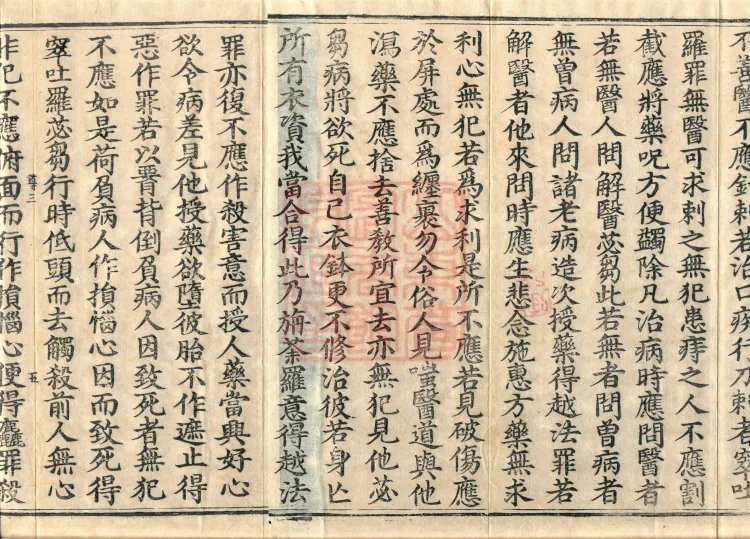 不善醫不應針刺若治口病行刀刺者窣吐
羅罪無醫可求刺之無犯患痔之人不應割
截應將藥呪方便蠲除凡治病時應問醫者
若無醫人問解醫苾芻此若無者問曾病者
無曾病人問諸老病造次授藥得越法罪若
解醫者他來問時應生悲念施惠方藥無求
利心無犯若爲求利是所不應若見破傷應
於屏處而爲纏裹勿令俗人見嗤醫道與他
瀉藥不應捨去善教所宜去亦無犯見他苾
芻病將欲死自己衣鉢更不修治彼若身亡
所有衣資我當合得此乃旃荼羅意得越法
罪亦復不應作殺害意而授人藥當興好心
欲令病差見他授藥欲墮彼胎不作遮止得
惡作罪若以脊背倒負病人因致死者無犯
不應如是荷負病人作損惱心因而致死得
窣吐羅苾芻行時低頭而去觸殺前人無心
尊三
五
非犯不應俯面而行作損惱心便得麤罪殺